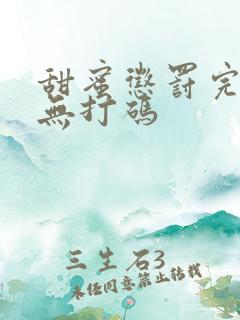 甜蜜懲罰完
無打碼
三生石3
未经同意禁止转载